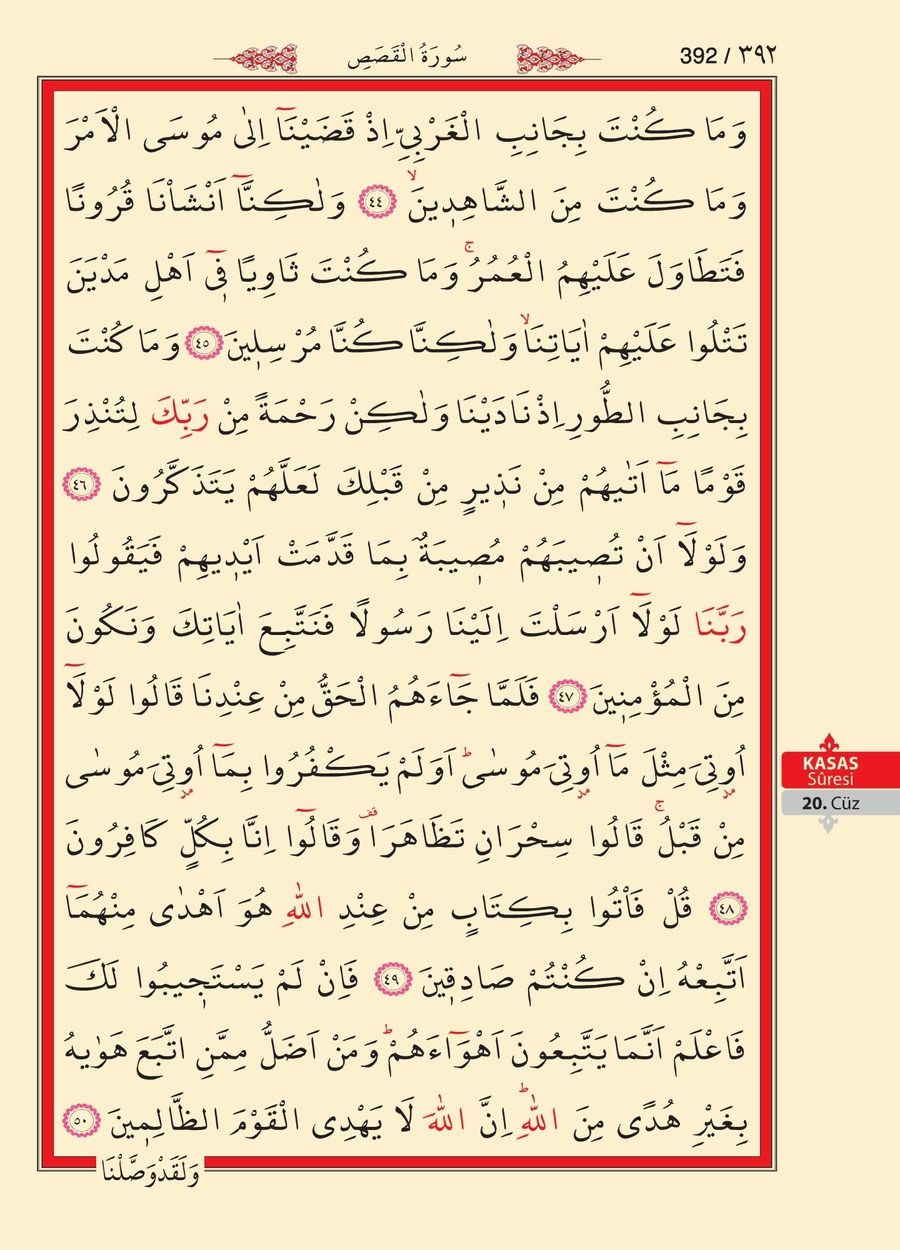 392 / ٣٩٢
سُورَةُ الْقَصَصِ
وَمَا كُنْتَ بِجَانِبِ الْغَرْبِيِّ اِذْ قَضَيْنَٓا اِلٰى مُوسَى الْاَمْرَ
وَمَا كُنْتَ مِنَ الشَّاهِد۪ينَۙ ﴿٤٤﴾ وَلٰكِنَّٓا اَنْشَاْنَا قُرُونًا
فَتَطَاوَلَ عَلَيْهِمُ الْعُمُرُۚ وَمَا كُنْتَ ثَاوِيًا ف۪ٓي اَهْلِ مَدْيَنَ
تَتْلُوا عَلَيْهِمْ اٰيَاتِنَاۙ وَلٰكِنَّا كُنَّا مُرْسِل۪ينَ ﴿٤٥﴾ وَمَا كُنْتَ
بِجَانِبِ الطُّورِ اِذْ نَادَيْنَا وَلٰكِنْ رَحْمَةً مِنْ رَبِّكَ لِتُنْذِرَ
قَوْمًا مَٓا اَتٰيهُمْ مِنْ نَذ۪يرٍ مِنْ قَبْلِكَ لَعَلَّهُمْ يَتَذَكَّرُونَ ﴿٤٦﴾
وَلَوْلَٓا اَنْ تُص۪يبَهُمْ مُص۪يبَةٌ بِمَا قَدَّمَتْ اَيْد۪يهِمْ فَيَقُولُوا
رَبَّنَا لَوْلَٓا اَرْسَلْتَ اِلَيْنَا رَسُولًا فَنَتَّبِعَ اٰيَاتِكَ وَنَكُونَ
مِنَ الْمُؤْمِن۪ينَ ﴿٤٧﴾ فَلَمَّا جَٓاءَهُمُ الْحَقُّ مِنْ عِنْدِنَا قَالُوا لَوْلَٓا
اُو۫تِيَ مِثْلَ مَٓا اُو۫تِيَ مُوسٰىۜ اَوَلَمْ يَكْفُرُوا بِمَٓا اُو۫تِيَ مُوسٰى
مِنْ قَبْلُۚ قَالُوا سِحْرَانِ تَظَاهَرَا۠ وَقَالُٓوا اِنَّا بِكُلٍّ كَافِرُونَ
﴿٤٨﴾ قُلْ فَأْتُوا بِكِتَابٍ مِنْ عِنْدِ اللّٰهِ هُوَ اَهْدٰى مِنْهُمَٓا
اَتَّبِعْهُ اِنْ كُنْتُمْ صَادِق۪ينَ ﴿٤٩﴾ فَاِنْ لَمْ يَسْتَج۪يبُوا لَكَ
فَاعْلَمْ اَنَّمَا يَتَّبِعُونَ اَهْوَٓاءَهُمْۜ وَمَنْ اَضَلُّ مِمَّنِ اتَّبَعَ هَوٰيهُ
بِغَيْرِ هُدًى مِنَ اللّٰهِۜ اِنَّ اللّٰهَ لَا يَهْدِي الْقَوْمَ الظَّالِم۪ينَ ﴿٥٠﴾
وَلَقَدْ وَصَّلْنَا
KASAS
Sûresi
20. Cüz